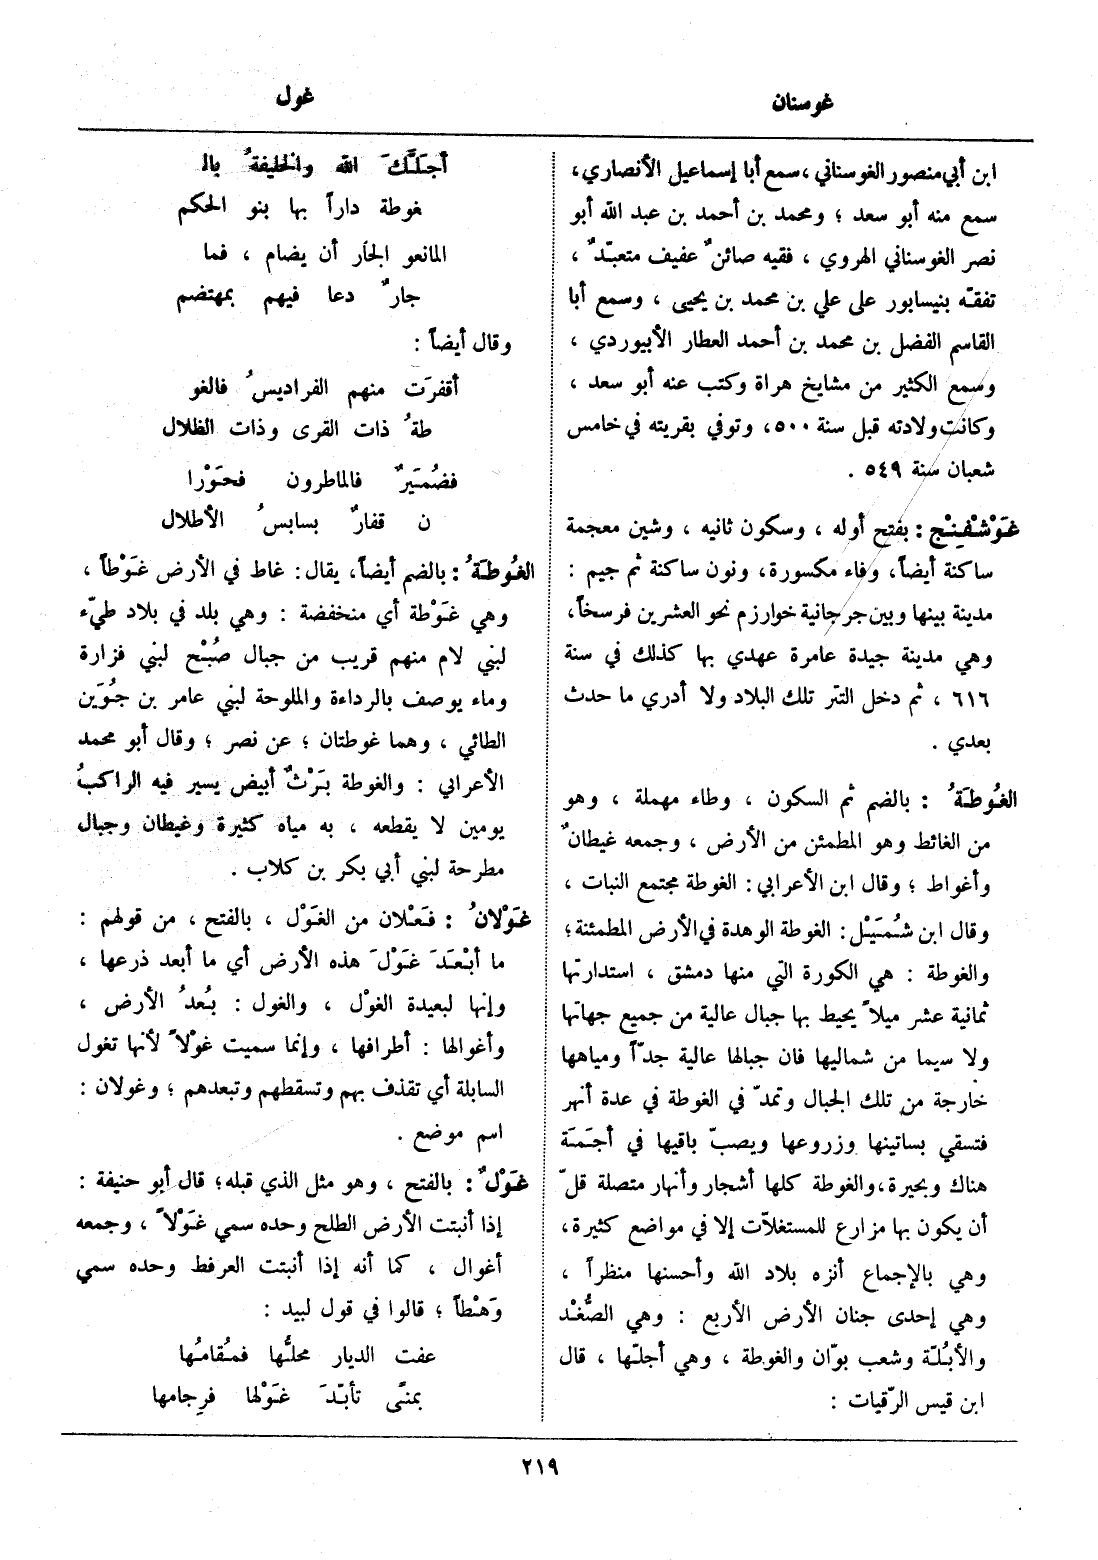 غوسنان
غول
ابن أبي منصور الغوسناني ، سمع أبا إسماعيل الأنصاري ،
سمع منه أبو سعد ؛ ومحمد بن أحمد بن عبد الله أبو
نصر الغوسناني الهروي ، فقيه صائنٌ عفيف متعبّدٌ ،
تفقّه بنيسابور على علي بن محمد بن يحيى ، وسمع أبا
القاسم الفضل بن محمد بن أحمد العطار الأبيوردي ،
وسمع الكثير من مشايخ هراة وكتب عنه أبو سعد ،
وكانت ولادته قبل سنة ٥٠٠، وتوفي بقريته في خامس
شعبان سنة ٥٤٩ .
غَوْشْفِنْج : بفتح أوله ، وسكون ثانيه ، وشين معجمة
ساكنة أيضاً، وفاء مكسورة، ونون ساكنة ثم جيم :
مدينة بينها وبين جرجانية خوارزم نحو العشرين فرسخاً،
وهي مدينة جيدة عامرة عهدي بها كذلك في سنة
٦١٦ ، ثم دخل التتر تلك البلاد ولا أدري ما حدث
بعدي .
الغُوطَةُ : بالضم ثم السكون ، وطاء مهملة ، وهو
من الغائط وهو المطمئن من الأرض ، وجمعه غيطانٌ
وأغواط ؛ وقال ابن الأعرابي : الغوطة مجتمع النبات ،
وقال ابن شُمَيْل : الغوطة الوهدة في الأرض المطمئنة؛
والغوطة : هي الكورة التي منها دمشق ، استدارتها
ثمانية عشر ميلاً يحيط بها جبال عالية من جميع جهاتها
ولا سيما من شماليها فان جبالها عالية جدّاً ومياهها
خارجة من تلك الجبال وتمدّ في الغوطة في عدة أنهر
فتسقي بساتينها وزروعها ويصبّ باقيها في أجَمَة
هناك وبحيرة، والغوطة كلها أشجار وأنهار متصلة قلّ
أن يكون بها مزارع للمستغلاّت إلا في مواضع كثيرة،
وهي بالإجماع أنزه بلاد الله وأحسنها منظراً ،
وهي إحدى جنان الأرض الأربع : وهي الصُّغْد
والأبُلّة وشعب بوّان والغوطة ، وهي أجلّها ، قال
ابن قيس الرّقيات :
أجَلَّكَ الله والخليفةُ بالـ
غوطة داراً بها بنو الحكم
المانعو الجار أن يضام ، فما
جارٌ دعا فيهم بمهتضم
وقال أيضاً :
أقفرَت منهم الفراديسُ فالغو
طةُ ذات القرى وذات الظلال
فضُمَيرٌ فالماطرون فحَوْرا
ن قفارٌ بسابسُ الأطلال
الغُوطَةُ : بالضم أيضاً، يقال: غاط في الأرض غَوْطاً ،
وهي غَوْطة أي منخفضة : وهي بلد في بلاد طيّء
لبني لام منهم قريب من جبال صُبْح لبني فزارة
وماء يوصف بالرداءة والملوحة لبني عامر بن جُوَين
الطائي ، وهما غوطتان ؛ عن نصر ؛ وقال أبو محمد
الأعرابي : والغوطة بَرْثٌ أبيض يسير فيه الراكبُ
يومين لا يقطعه ، به مياه كثيرة وغيطان وجبال
مطرحة لبني أبي بكر بن كلاب .
غَوْلانُ : فَعْلان من الغَوْل ، بالفتح ، من قولهم :
ما أبْعَدَ غَوْلَ هذه الأرض أي ما أبعد ذرعها ،
وإنها لبعيدة الغوْل ، والغول : بُعدُ الأرض ،
وأغوالها : أطرافها ، وإنما سميت غوْلاً لأنها تغول
السابلة أي تقذف بهم وتسقطهم وتبعدهم ؛ وغولان :
اسم موضع .
غَوْلٌ : بالفتح ، وهو مثل الذي قبله؛ قال أبو حنيفة :
إذا أنبتت الأرض الطلح وحده سمي غَوْلاً ، وجمعه
أغوال ، كما أنه إذا أنبتت العرفط وحده سمي
وَهْطاً ؛ قالوا في قول لبيد :
عفت الديار محلُّها فمُقامُها
بمنًى تأبّدَ غَوْلها فرِجامها
٢١٩